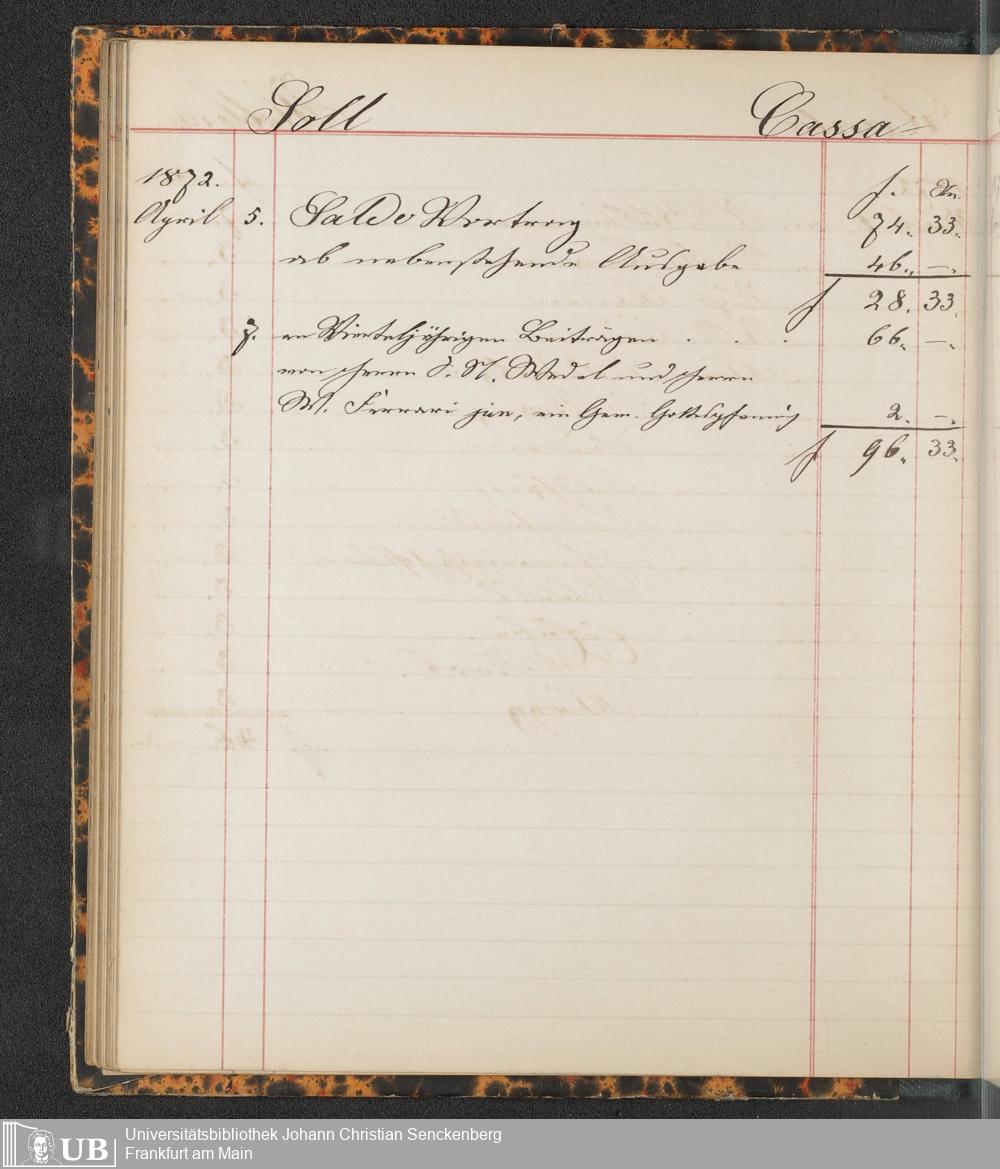 Soll Cassa
1872. f. Xr.
April 5. Saldo Vortrag 74. 33.
ab nebenstehende Ausgabe 46. —.
f 28. 33.
7. an Vierteljährigen Beiträgen . . . 66. —.
von Herrn F. A. Wedel und Herrn
W. Ferrari jun, ein Gem. Gottespfennig 2. —.
f 96. 33.
Universitätsbibliothek Johann Christian Senckenberg
UB Frankfurt am Main